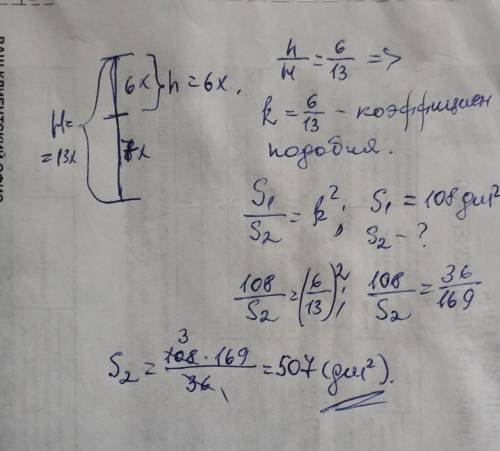 6x } h = 6x,
H =
= 13x
7x
h/H = 6/13 =>
k = 6/13 - коэффициен
подобия.
S₁/S₂ = k²; S₁ = 108 дм²
S₂ - ?
108/S₂ = (6/13)²; 108/S₂ = 36/169
S₂ = 108 · 169/36 = 507 (дм²).
3
1